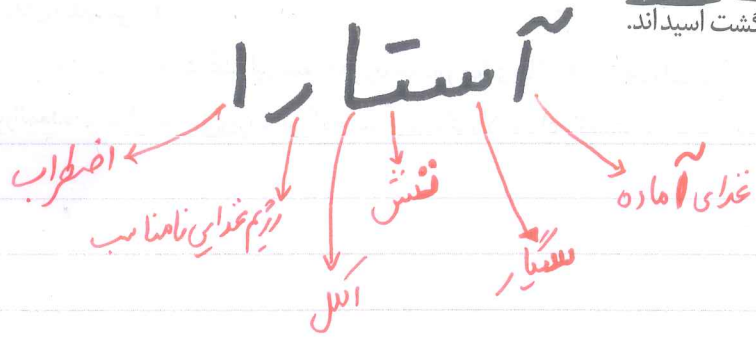 گشت اسیداند.
آستارا
غذای آماده
سیگار
تنش
الکل
رژیم غذایی نامناسب
اضطراب